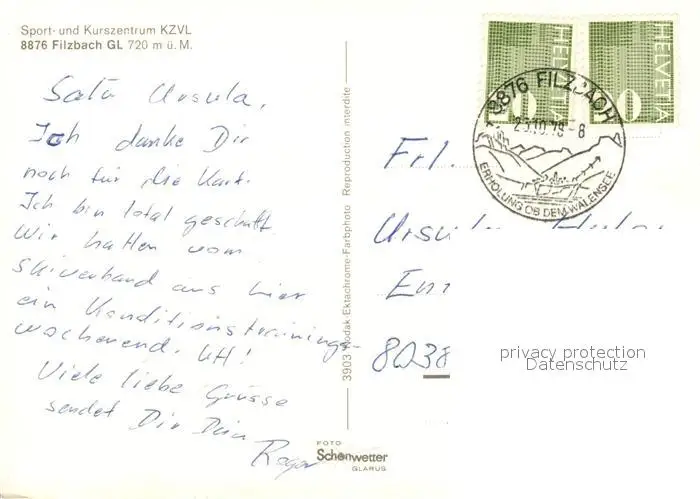 Sport- und Kurszentrum KZVL
8876 Filzbach GL 720 m ü. M.
Ursula,
Ich danke Dir
noch für die Karte.
Ich bin total geschafft.
Wir hatten vom
Skiverband aus hier
ein Konditionstrainings-
wochenend. Uff!
Viele liebe Grüsse
sendet Dir Dein
Roger
3903 Kodak Ektachrome-Farbphoto Reproduction interdite
FOTO
Schönwetter
GLARUS
HELVETIA
10
HELVETIA
10
8876 FILZBACH
25.10.79-8
ERHOLUNG OB DEM WALENSEE
Frl.
8038
privacy protection
Datenschutz